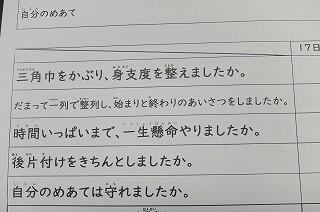 自分のめあて
17日
三角巾をかぶり、身支度を整えましたか。
だまって一列で整列し、始まりと終わりのあいさつをしましたか。
時間いっぱいまで、一生懸命やりましたか。
後片付けをきちんとしましたか。
自分のめあては守れましたか。